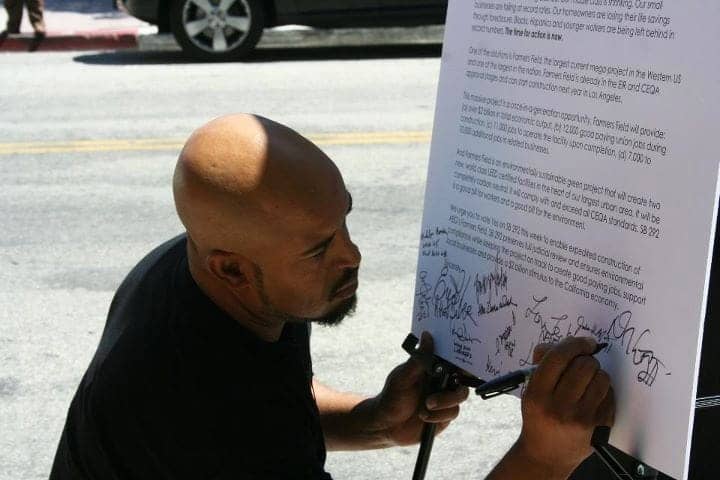 businesses are failing at record rates. Our homeowners are losing their life savings
through foreclosures. Blacks, Hispanics and younger workers are being left behind in
record numbers. The time for action is now.
One of the solutions is Farmers Field, the largest current mega-project in the Western US
and one of the largest in the nation. Farmers Field is already in the EIR and CEQA
approval stages and can start construction next year in Los Angeles.
This massive project is a once-in-a-generation opportunity. Farmers Field will provide:
(a) over $2 billion in total economic output, (b) 12,000 good paying union jobs during
construction, (c) 11,000 jobs to operate the facility upon completion, (d) 7,000 to
10,000 additional jobs in related businesses.
And Farmers Field is an environmentally sustainable green project that will create two
new, world class LEED certified facilities in the heart of our largest urban area. It will be
completely carbon neutral. It will comply with and exceed all CEQA standards. SB 292
is a good bill for workers and a good bill for the environment.
We urge you to vote Yes on SB 292 this week to enable expedited construction of
AEG's Farmers Field. SB 292 preserves full judicial review and ensures environmental
compliance while keeping the project on track to create good paying jobs, support
local business and provide a $2 billion stimulus to the California economy.
Sincerely,